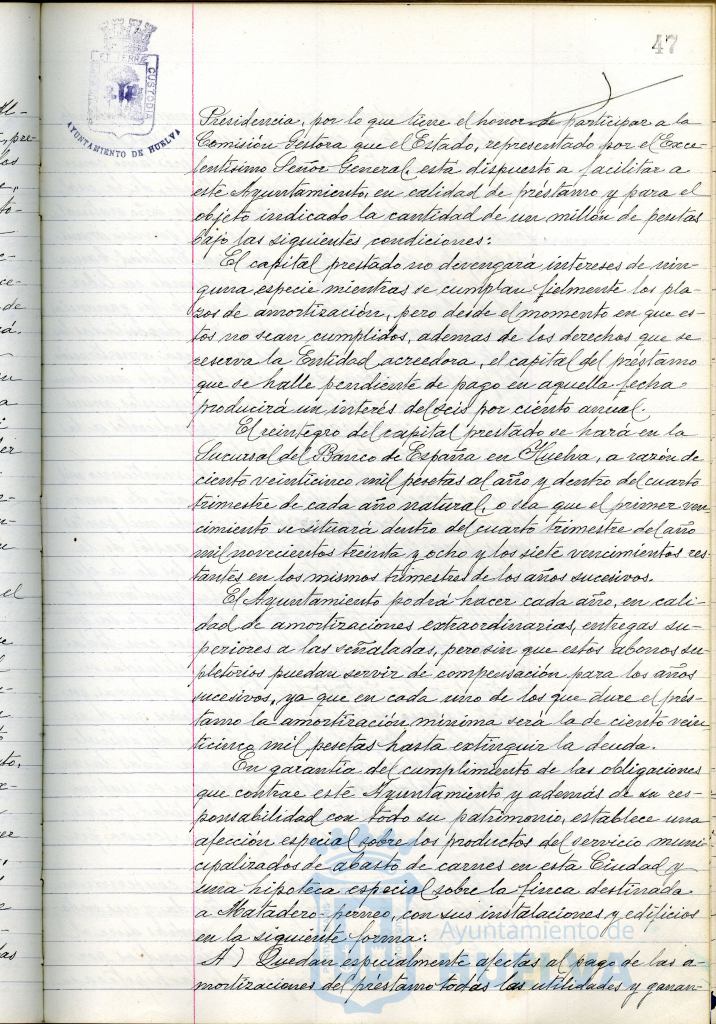 47
AYUNTAMIENTO DE HUELVA
CUSTODIA
Presidencia, por lo que tiene el honor de participar a la
Comisión Gestora que el Estado, representado por el Exce-
lentísimo Señor General, está dispuesto a facilitar a
este Ayuntamiento, en calidad de préstamo y para el
objeto indicado la cantidad de un millón de pesetas
bajo las siguientes condiciones:
El capital prestado no devengará intereses de nin-
guna especie mientras se cumplan fielmente los pla-
zos de amortización, pero desde el momento en que es-
tos no sean cumplidos, ademas de los derechos que se
reserva la Entidad acreedora, el capital del préstamo
que se halle pendiente de pago en aquella fecha
producirá un interés del seis por ciento anual.
El reintegro del capital prestado se hará en la
Sucursal del Banco de España en Huelva, a razón de
ciento veinticinco mil pesetas al año y dentro del cuarto
trimestre de cada año natural, o sea que el primer ven-
cimiento se situará dentro del cuarto trimestre del año
mil novecientos treinta y ocho y los siete vencimientos res-
tantes en los mismos trimestres de los años sucesivos.
El Ayuntamiento podrá hacer cada año, en cali-
dad de amortizaciones extraordinarias, entregas su-
periores a las señaladas, pero sin que estos abonos su-
pletorios puedan servir de compensación para los años
sucesivos, ya que en cada uno de los que dure el prés-
tamo la amortización mínima será la de ciento vein-
ticinco mil pesetas hasta extinguir la deuda.
En garantía del cumplimiento de las obligaciones
que contrae este Ayuntamiento y además de su res-
ponsabilidad con todo su patrimonio, establece una
afección especial sobre los productos del servicio muni-
cipalizados de abasto de carnes en esta Ciudad y
una hipoteca especial sobre la finca destinada
a Matadero-perneo, con sus instalaciones y edificios
en la siguiente forma:
A) Quedan especialmente afectas al pago de las a-
mortizaciones del préstamo todas las utilidades y ganan-
Ayuntamiento de
HUELVA